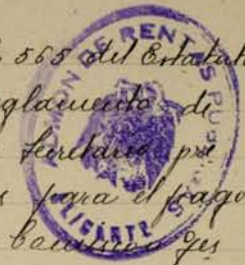 565 del Estatut
glamento de
Secretario pre
s para el pago
ges
ADMON DE RENTAS PUBLICAS
ALICANTE